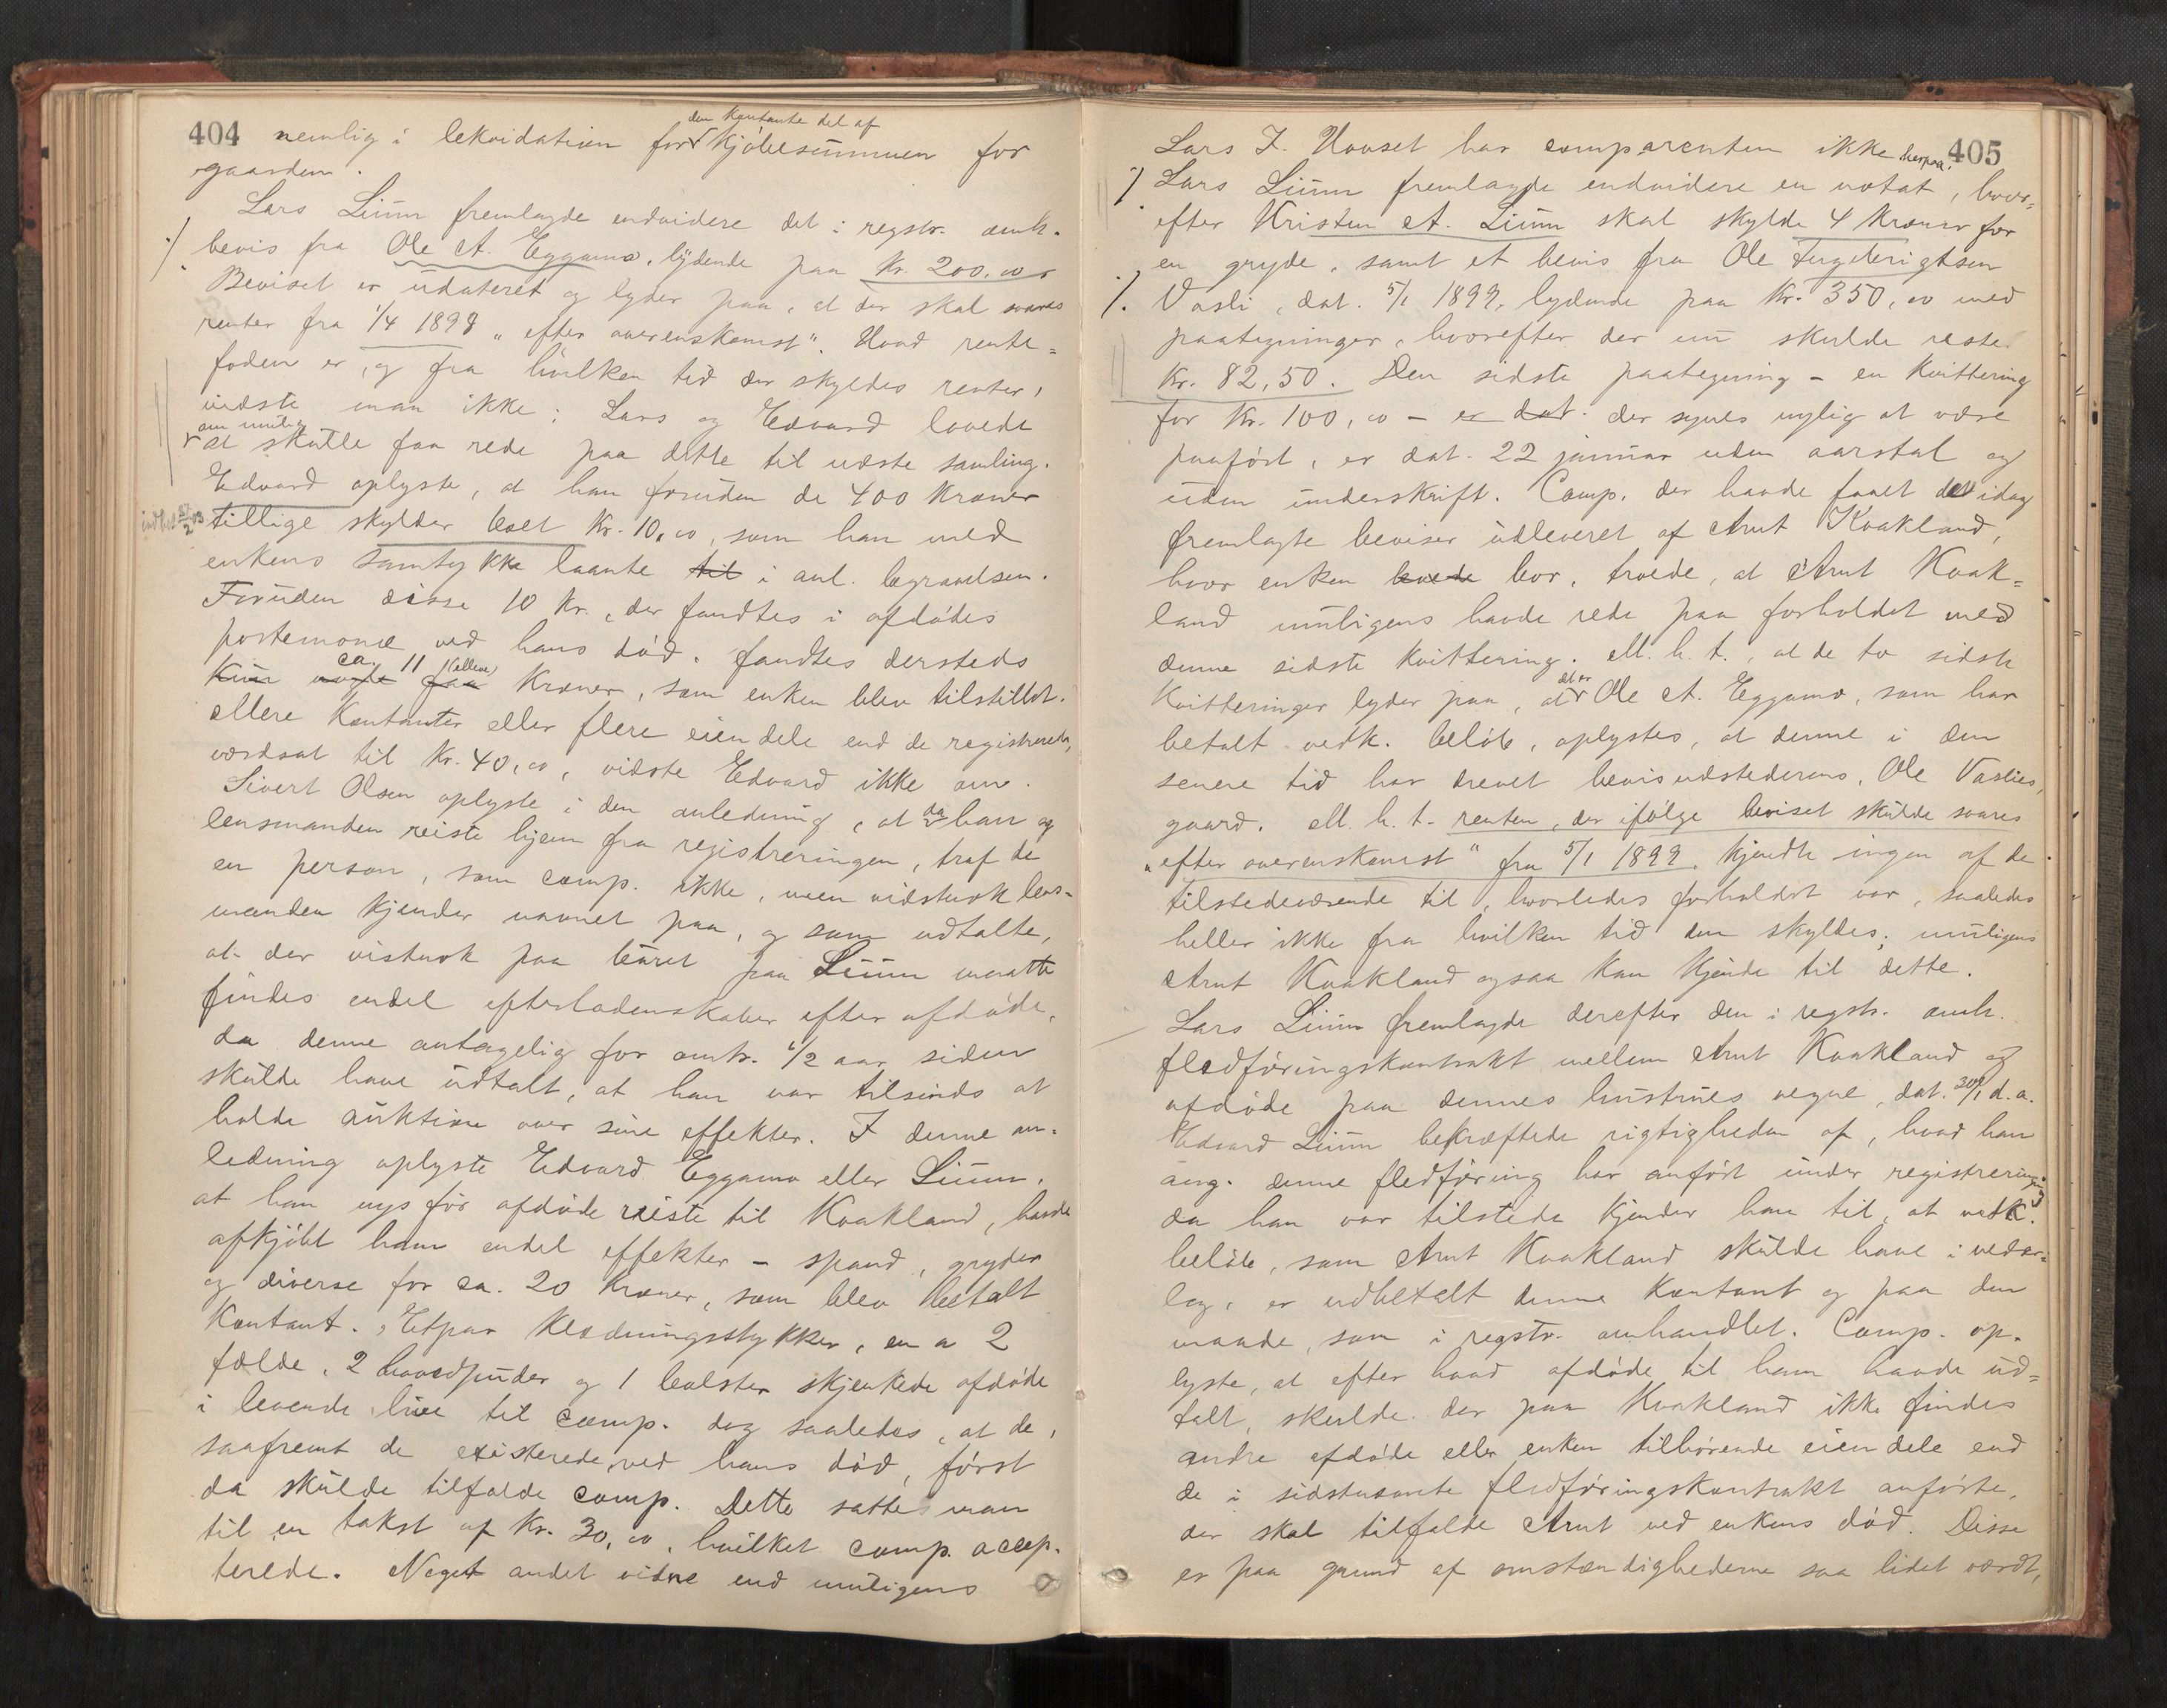 404 nemlig i lekvidation for den kontante del af kjöbesummen for
gaarden.
Lars Liium fremlagde endvidere det i regstr. omh.
bevis fra Ole A. Eggamo, lydende paa Kr. 200,00
Beviset er udateret og lyder paa, at der skal svares
renter fra 1/4 1898 "efter overenskomst". Hvad rente=
foden er, og fra hvilken tid der skyldes renter,
vidste man ikke; Lars og Edvard lovede
om mulig at skulle faa rede paa dette til næste samling.
Edvard oplyste, at han foruden de 400 kroner
tillige skylder boet Kr. 10,00, som han med
enkens samtykke laante til i anl. begravelsen.
Foruden disse 10 Kr., der fandtes i afdödes
portemonnæ ved hans död, fandtes dersteds
kun nogle faa ca. 11 (elleve) Kroner, som enken blev tilstillet.
Mere kontanter eller flere eiendele end de registrerede,
værdsat til Kr. 40,00, vidste Edvard ikke om.
Sivert Olsen oplyste i den anledning, at da han og
lensmanden reiste hjem fra registreringen, traf de
en person, som comp. ikke, men vidstnok lens-
manden kjender navnet paa, og som udtalte,
at der vistnok paa buret paa Liium maatte
findes endel efterladenskaber efter afdöde,
da denne antagelig for omtr. 1/2 aar siden
skulde have udtalt, at han var tilsinds at
holde auktion over sine effekter. I denne an=
ledning oplyste Edvard Eggamo eller Liium,
at han nys för afdöde reiste til Kvakland, havde
afkjöbt ham endel effekter – spand, gryder
og diverse for ca. 20 kroner, som blev betalt
kontant. Etpar klædningsstykker, en a 2
fælde, 2 hovedpuder og 1 bolster skjenkede afdöde
i levende live til comp. dog saaledes, at de,
saafremt de existerede ved hans död, först
da skulde tilfalde comp. Dette sattes man
til en takst af Kr. 30,00, hvilket comp. accep-
terede. Noget andet vidne end muligens
405
Lars J. Hovset har comparenten ikke herpaa.
Lars Liium fremlagde endvidere en notat, hvor=
efter Kristen A. Liium skal skylde 4 kroner for
en gryde, samt et bevis fra Ole
Vasli, dat. 5/1 1899, lydende paa Kr. 350,00 med
paategninger, hvorefter der nu skulde reste
Kr. 82,50. Den sidste paategning – en kvittering
for Kr. 100,00 – er dat. der synes nylig at være
paafört, er dat. 22 januar uden aarstal og
uden underskrift. Comp. der havde faaet de idag
fremlagte beviser udleveret af Arnt Kvakland,
hvor enken boede bor, troede, at Arnt Kvak=
land muligens havde rede paa forholdet med
denne sidste kvittering. M. h. t., at de to sidste
kvitteringer lyder paa, at det er Ole A. Eggamo, som har
betalt vedk. belöb, oplystes, at denne i den
senere tid har drevet bevisudstederens, Ole Vaslies,
gaard. M. h. t. renten, der ifölge beviset skulde svares
"efter overenskomst" fra 5/1 1899, kjendte ingen af de
tilstedeværende til, hvorledes forholdet var, saaledes
heller ikke fra hvilken tid den skyldes; muligens
Arnt Kvakland ogsaa kan kjende til dette.
Lars Liium fremlagde derefter den i regstr. omh.
fledföringskontrakt mellem Arnt Kvakland og
afdöde paa dennes hustrues vegne, dat. 30/1 d. a.
Edvard Liium bekræftede rigtigheden af, hvad han
ang. denne fledföring har anfört under registreringen;
da han var tilstede kjender han til, at vedk.
belöb, som Arnt Kvakland skulde have i veder=
lag, er udbetalt denne kontant og paa den
maade, som i regstr. omhandlet. Comp. op-
lyste, at efter hvad afdöde til ham havde ud=
talt, skulde der paa Kvakland ikke findes
andre afdöde eller enken tilhörende eiendele end
de i sidstnævnte fledföringskontrakt anförte,
der skal tilfalde Arnt ved enkens död. Disse
er paa grund af omstændighederne saa lidet værdt,